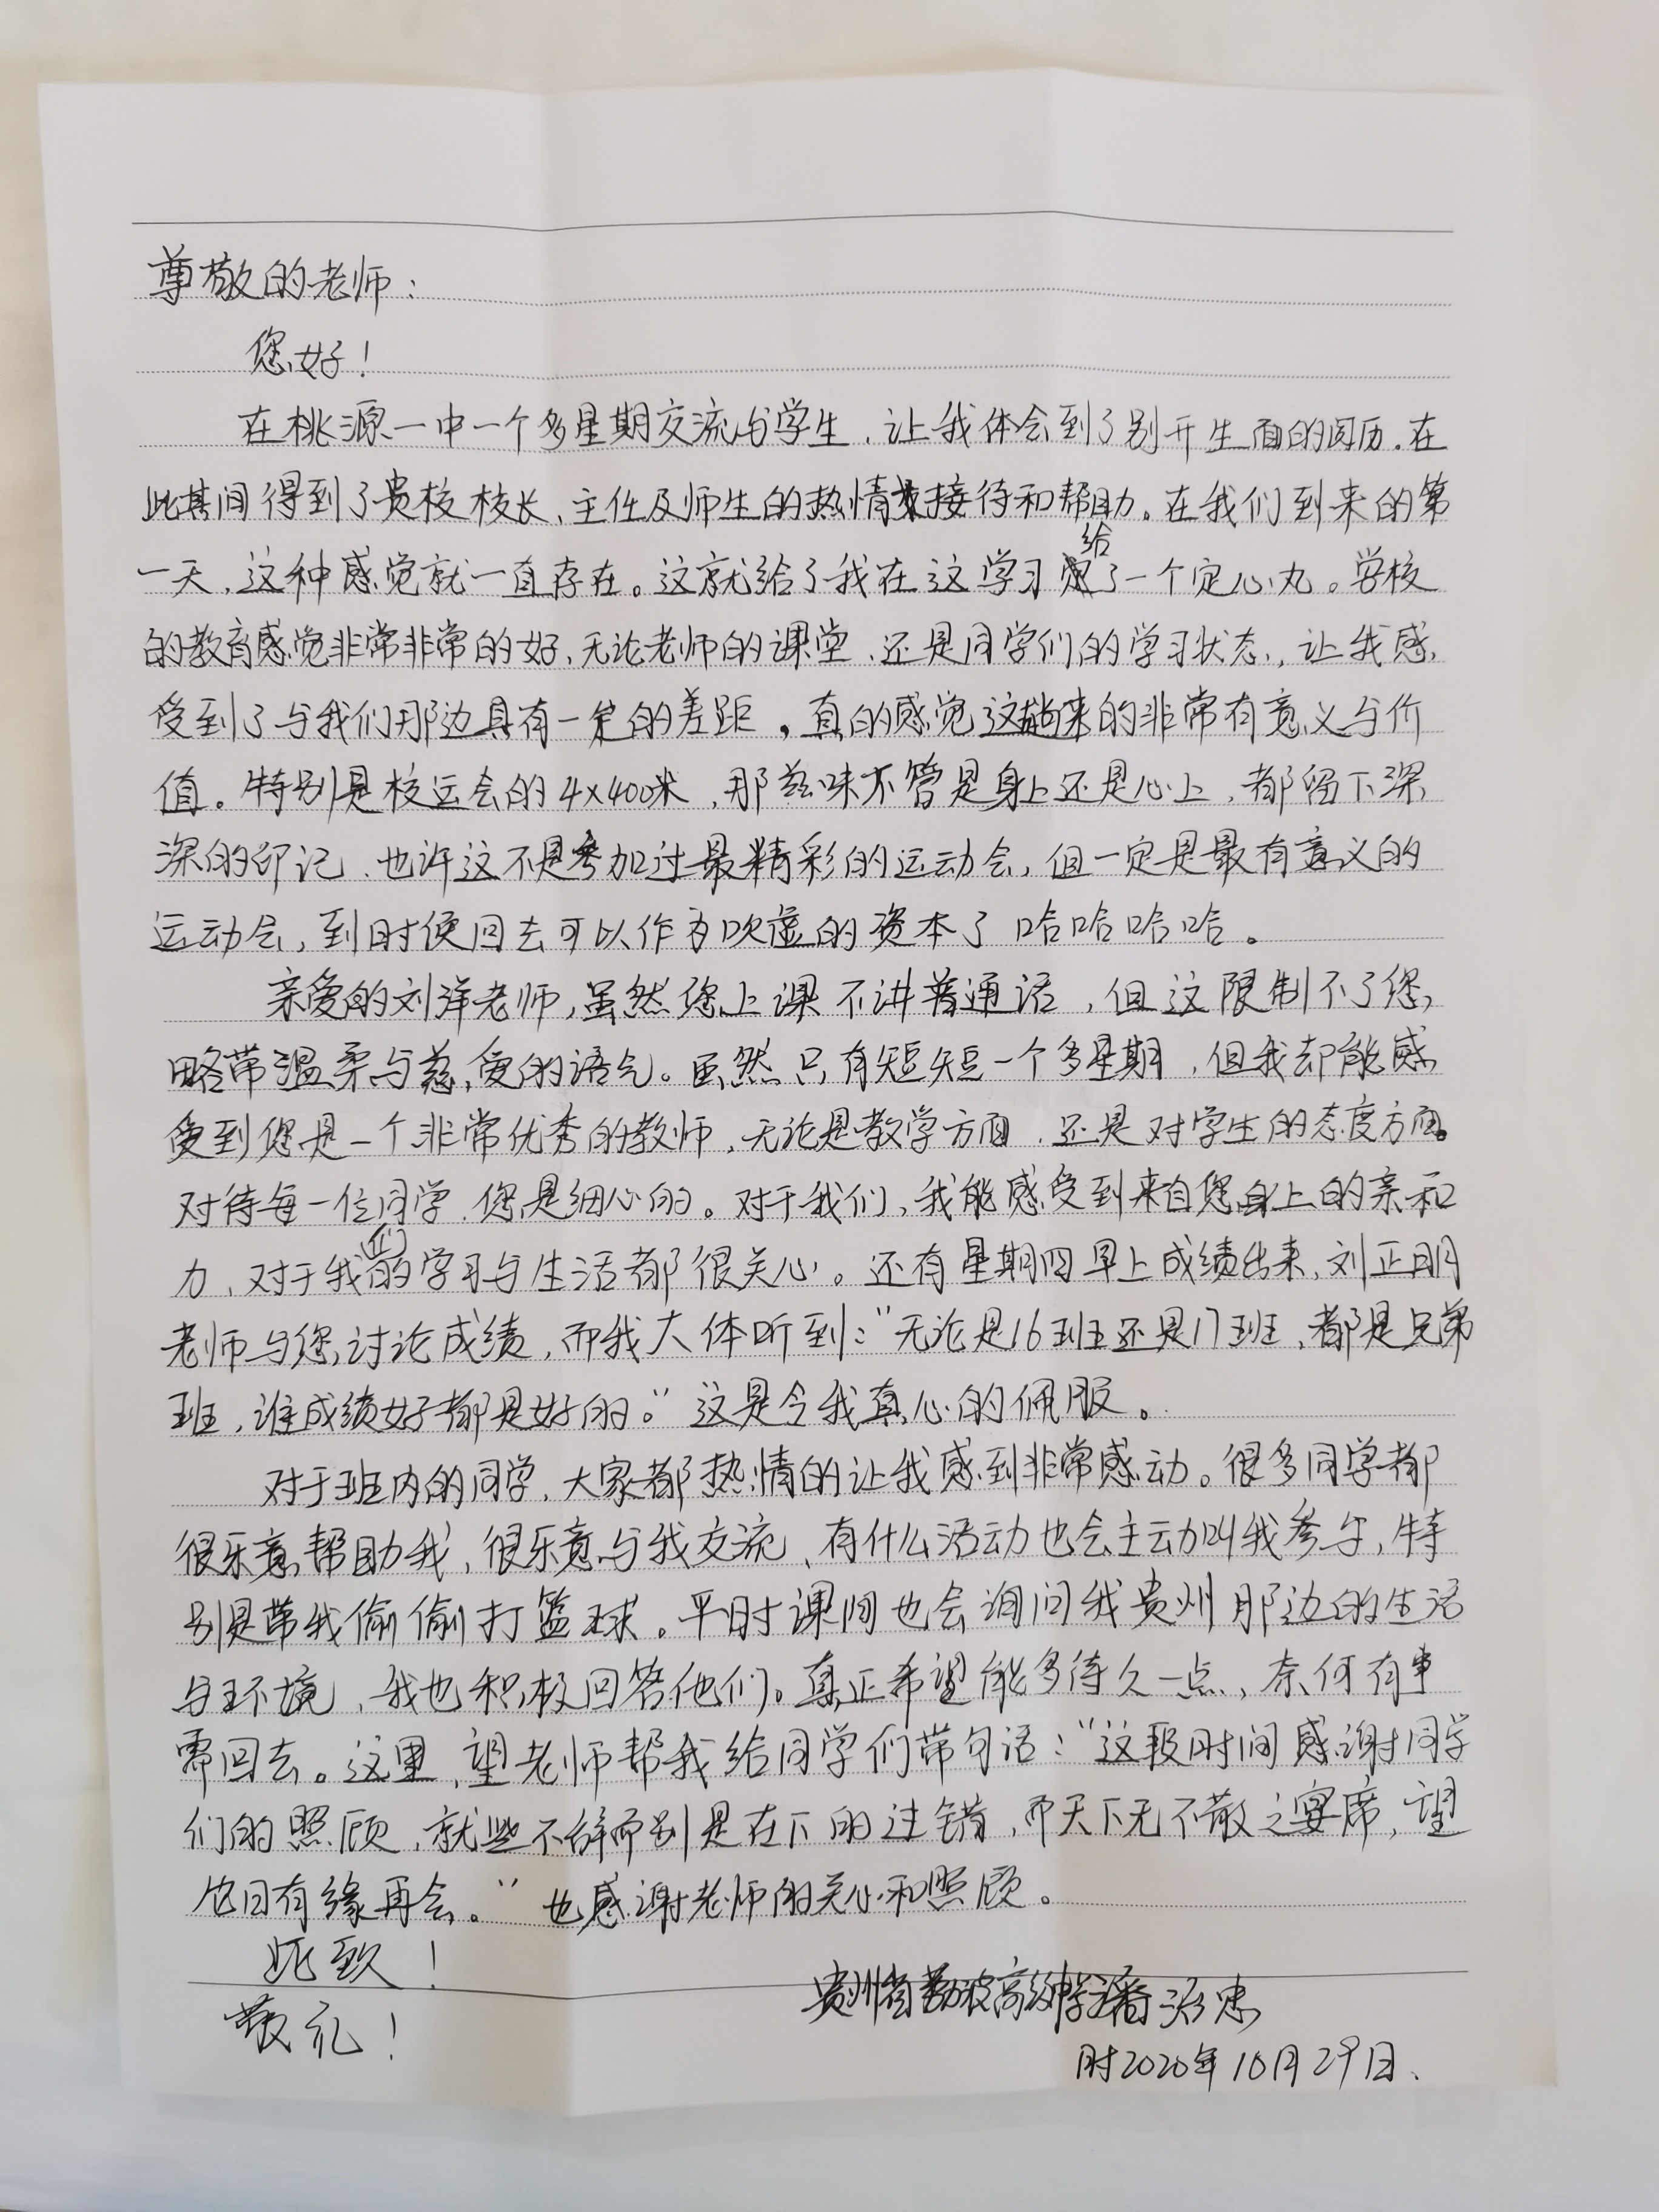 尊敬的老师：
您好！
在桃源一中一个多星期交流与学生，让我体会到了别开生面的阅历。在
此其间得到了贵校校长、主任及师生的热情接待和帮助。在我们到来的第
一天，这种感觉就一直存在。这就给了我在这学习给了一个定心丸。学校
的教育感觉非常非常的好，无论老师的课堂，还是同学们的学习状态，让我感
受到了与我们那边具有一定的差距，真的感觉这趟来的非常有意义与价
值。特别是校运会的4×400米，那滋味不管是身上还是心上，都留下深
深的印记，也许这不是参加过最精彩的运动会，但一定是最有意义的
运动会，到时候回去可以作为吹虚的资本了哈哈哈哈。
亲爱的刘洋老师，虽然您上课不讲普通话，但这限制不了您，
略带温柔与慈爱的语气。虽然只有短短一个多星期，但我却能感
受到您是一个非常优秀的教师，无论是教学方面，还是对学生的态度方面。
对待每一位同学，您是细心的。对于我们，我能感受到来自您身上的亲和
力，对于我们的学习与生活都很关心。还有星期四早上成绩出来，刘正明
老师与您讨论成绩，而我大体听到：“无论是16班还是17班，都是兄弟
班，谁成绩好都是好的。”这是令我真心的佩服。
对于班内的同学，大家都热情的让我感到非常感动。很多同学都
很乐意帮助我，很乐意与我交流，有什么活动也会主动叫我参与，特
别是带我偷偷打篮球。平时课间也会询问我贵州那边的生活
与环境，我也积极回答他们。真正希望能多待久一点，奈何有事
需回去。这里，望老师帮我给同学们带句话：“这段时间感谢同学
们的照顾，就此不辞而别是在下的过错，而天下无不散之宴席，望
他日有缘再会。”也感谢老师的关心和照顾。
此致！
敬礼！
贵州省荔波高级中学潘治忠
时2020年10月29日、